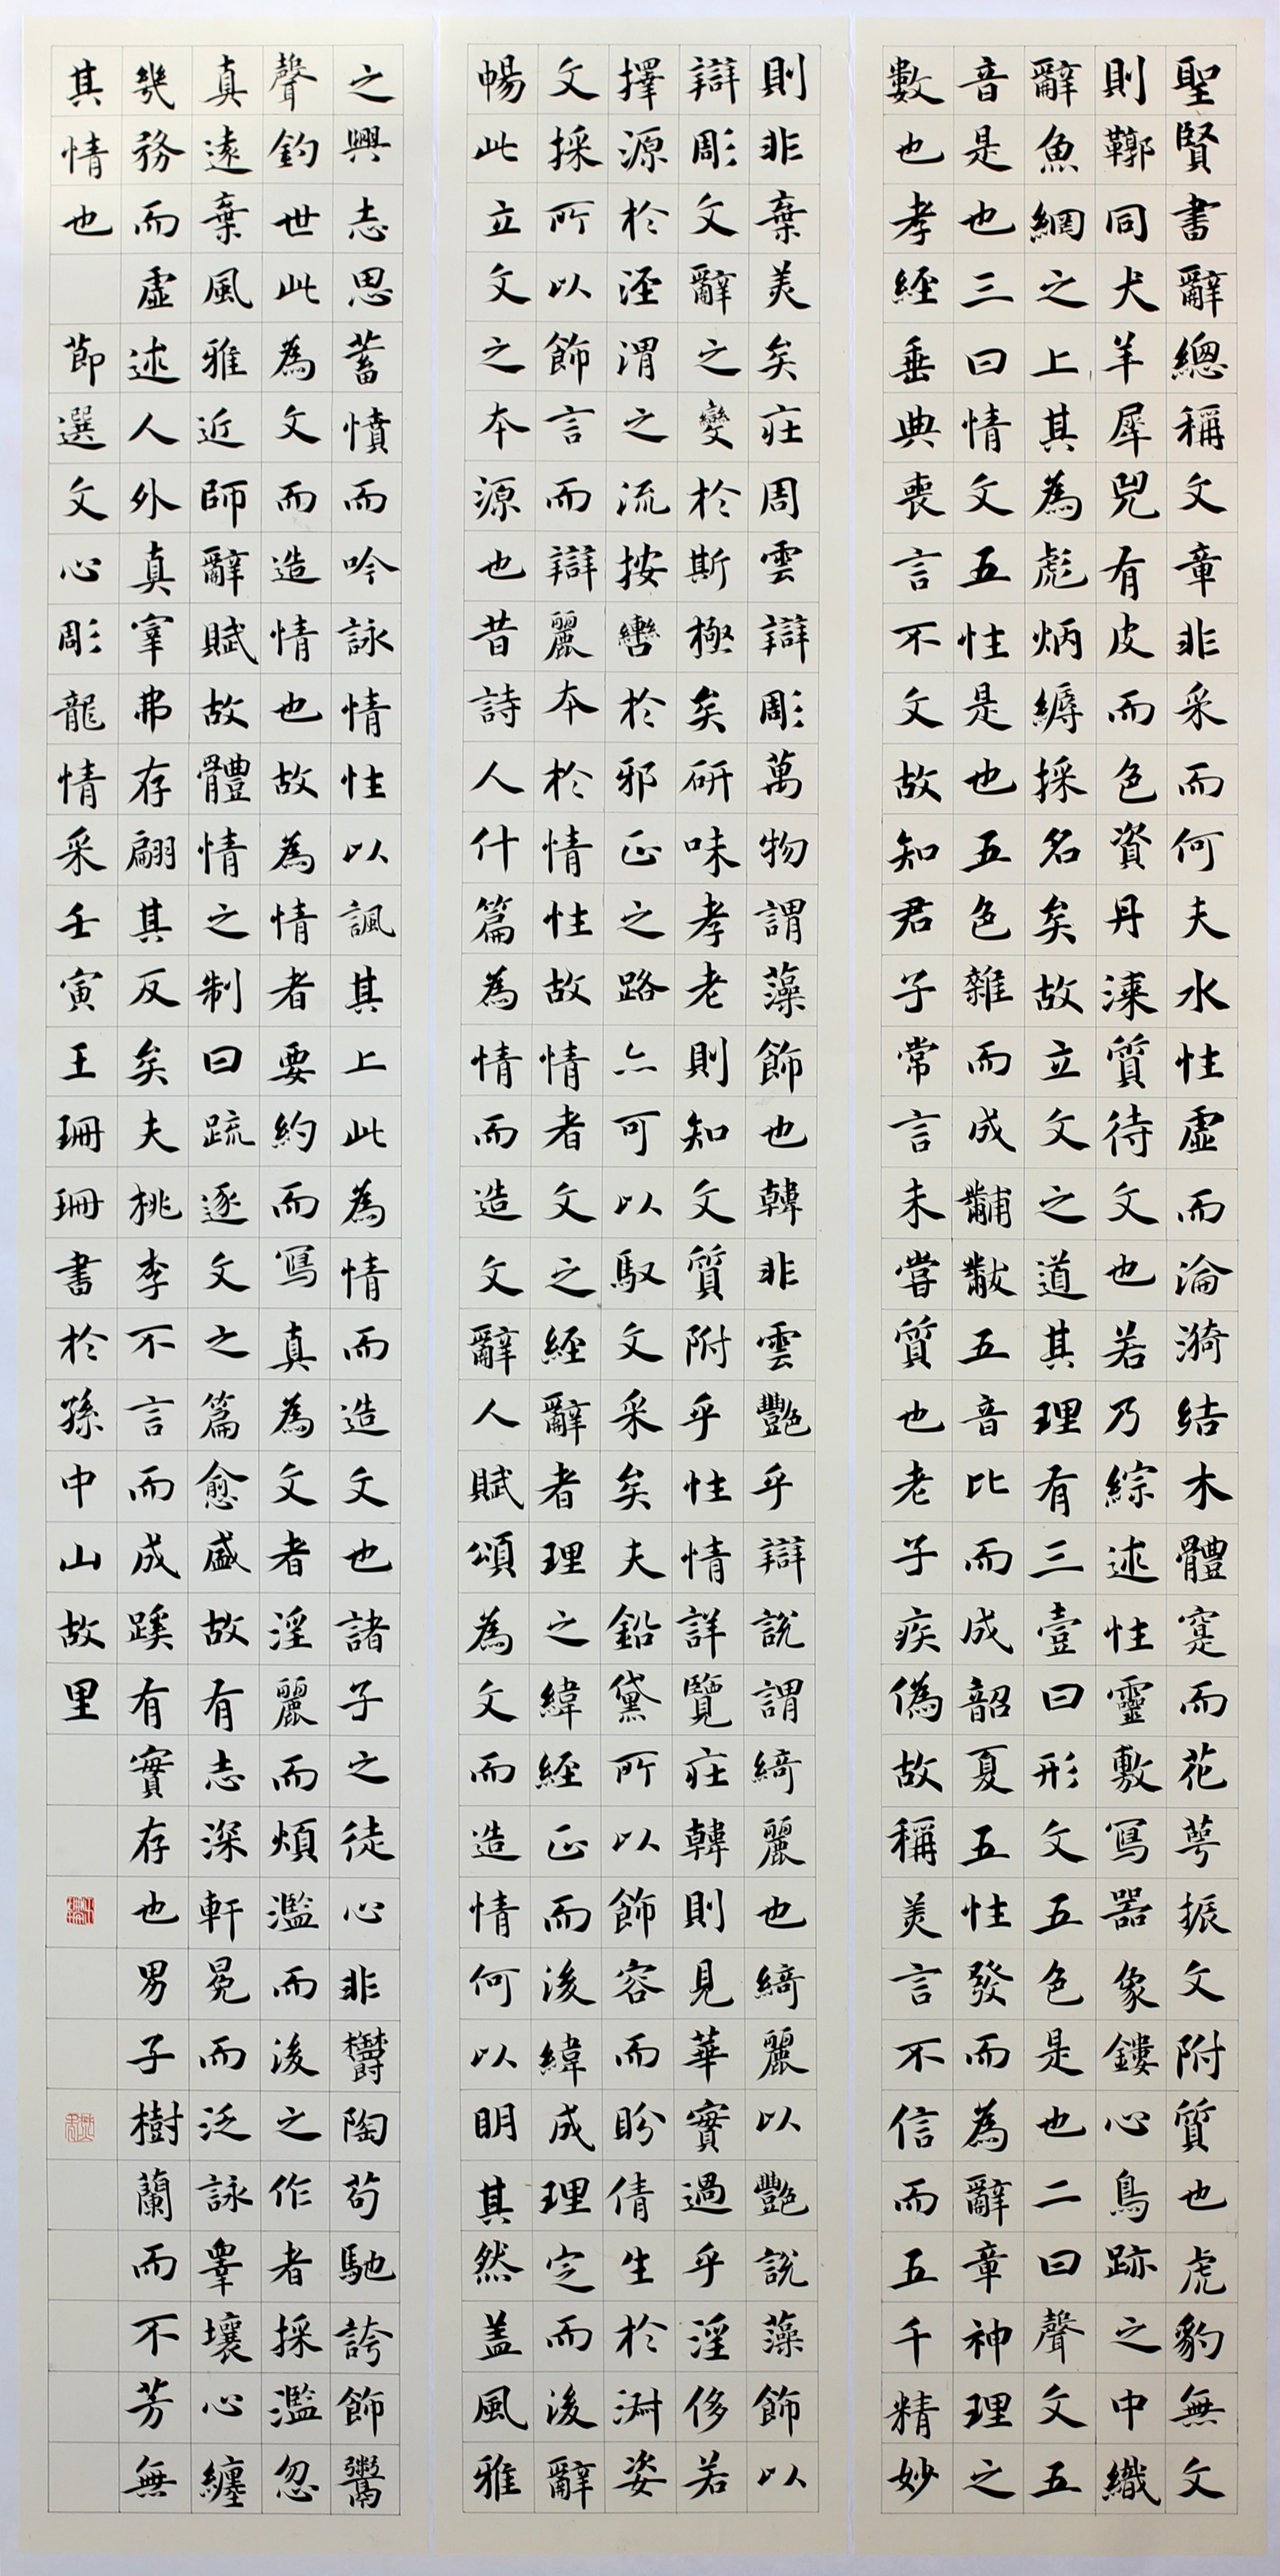 聖賢書辭總稱文章非采而何夫水性虛而淪漪結木體寔而花萼振文附質也虎豹無文
則鞹同犬羊犀兕有皮而色資丹漆質待文也若乃綜述性靈敷寫器象鏤心鳥跡之中織
辭魚網之上其為彪炳縟採名矣故立文之道其理有三壹曰形文五色是也二曰聲文五
音是也三曰情文五性是也五色雜而成黼黻五音比而成韶夏五性發而為辭章神理之
數也孝經垂典喪言不文故知君子常言未嘗質也老子疾偽故稱美言不信而五千精妙
則非棄美矣莊周雲辯彫萬物謂藻飾也韓非雲艷乎辯說謂綺麗也綺麗以艷說藻飾以
辯彫文辭之變於斯極矣研味孝老則知文質附乎性情詳覽莊韓則見華實過乎淫侈若
擇源於涇渭之流按轡於邪正之路亦可以馭文采矣夫鉛黛所以飾容而盼倩生於淑姿
文採所以飾言而辯麗本於情性故情者文之經辭者理之緯經正而後緯成理定而後辭
暢此立文之本源也昔詩人什篇為情而造文辭人賦頌為文而造情何以明其然蓋風雅
之興志思蓄憤而吟詠情性以諷其上此為情而造文也諸子之徒心非鬱陶苟馳誇飾鬻
聲釣世此為文而造情也故為情者要約而寫真為文者淫麗而煩濫而後之作者採濫忽
真遠棄風雅近師辭賦故體情之制日疏逐文之篇愈盛故有志深軒冕而泛詠皋壤心纏
幾務而虛述人外真宰弗存翩其反矣夫桃李不言而成蹊有實存也男子樹蘭而不芳無
其情也 節選文心彫龍情采壬寅王珊珊書於孫中山故里